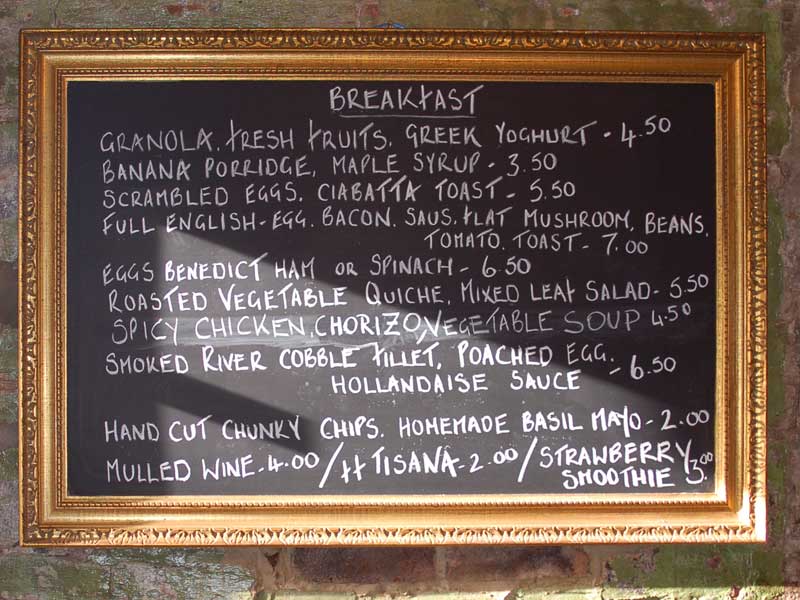 BREAKFAST
GRANOLA, FRESH FRUITS, GREEK YOGHURT - 4.50
BANANA PORRIDGE, MAPLE SYRUP - 3.50
SCRAMBLED EGGS, CIABATTA TOAST - 5.50
FULL ENGLISH - EGG, BACON, SAUS, FLAT MUSHROOM, BEANS,
TOMATO, TOAST - 7.00
EGGS BENEDICT HAM OR SPINACH - 6.50
ROASTED VEGETABLE QUICHE, MIXED LEAF SALAD - 5.50
SPICY CHICKEN, CHORIZO, VEGETABLE SOUP 4.50
SMOKED RIVER COBBLE FILLET, POACHED EGG,
HOLLANDAISE SAUCE - 6.50
HAND CUT CHUNKY CHIPS, HOMEMADE BASIL MAYO - 2.00
MULLED WINE - 4.00 / FF TISANA - 2.00 / STRAWBERRY
SMOOTHIE 3.00